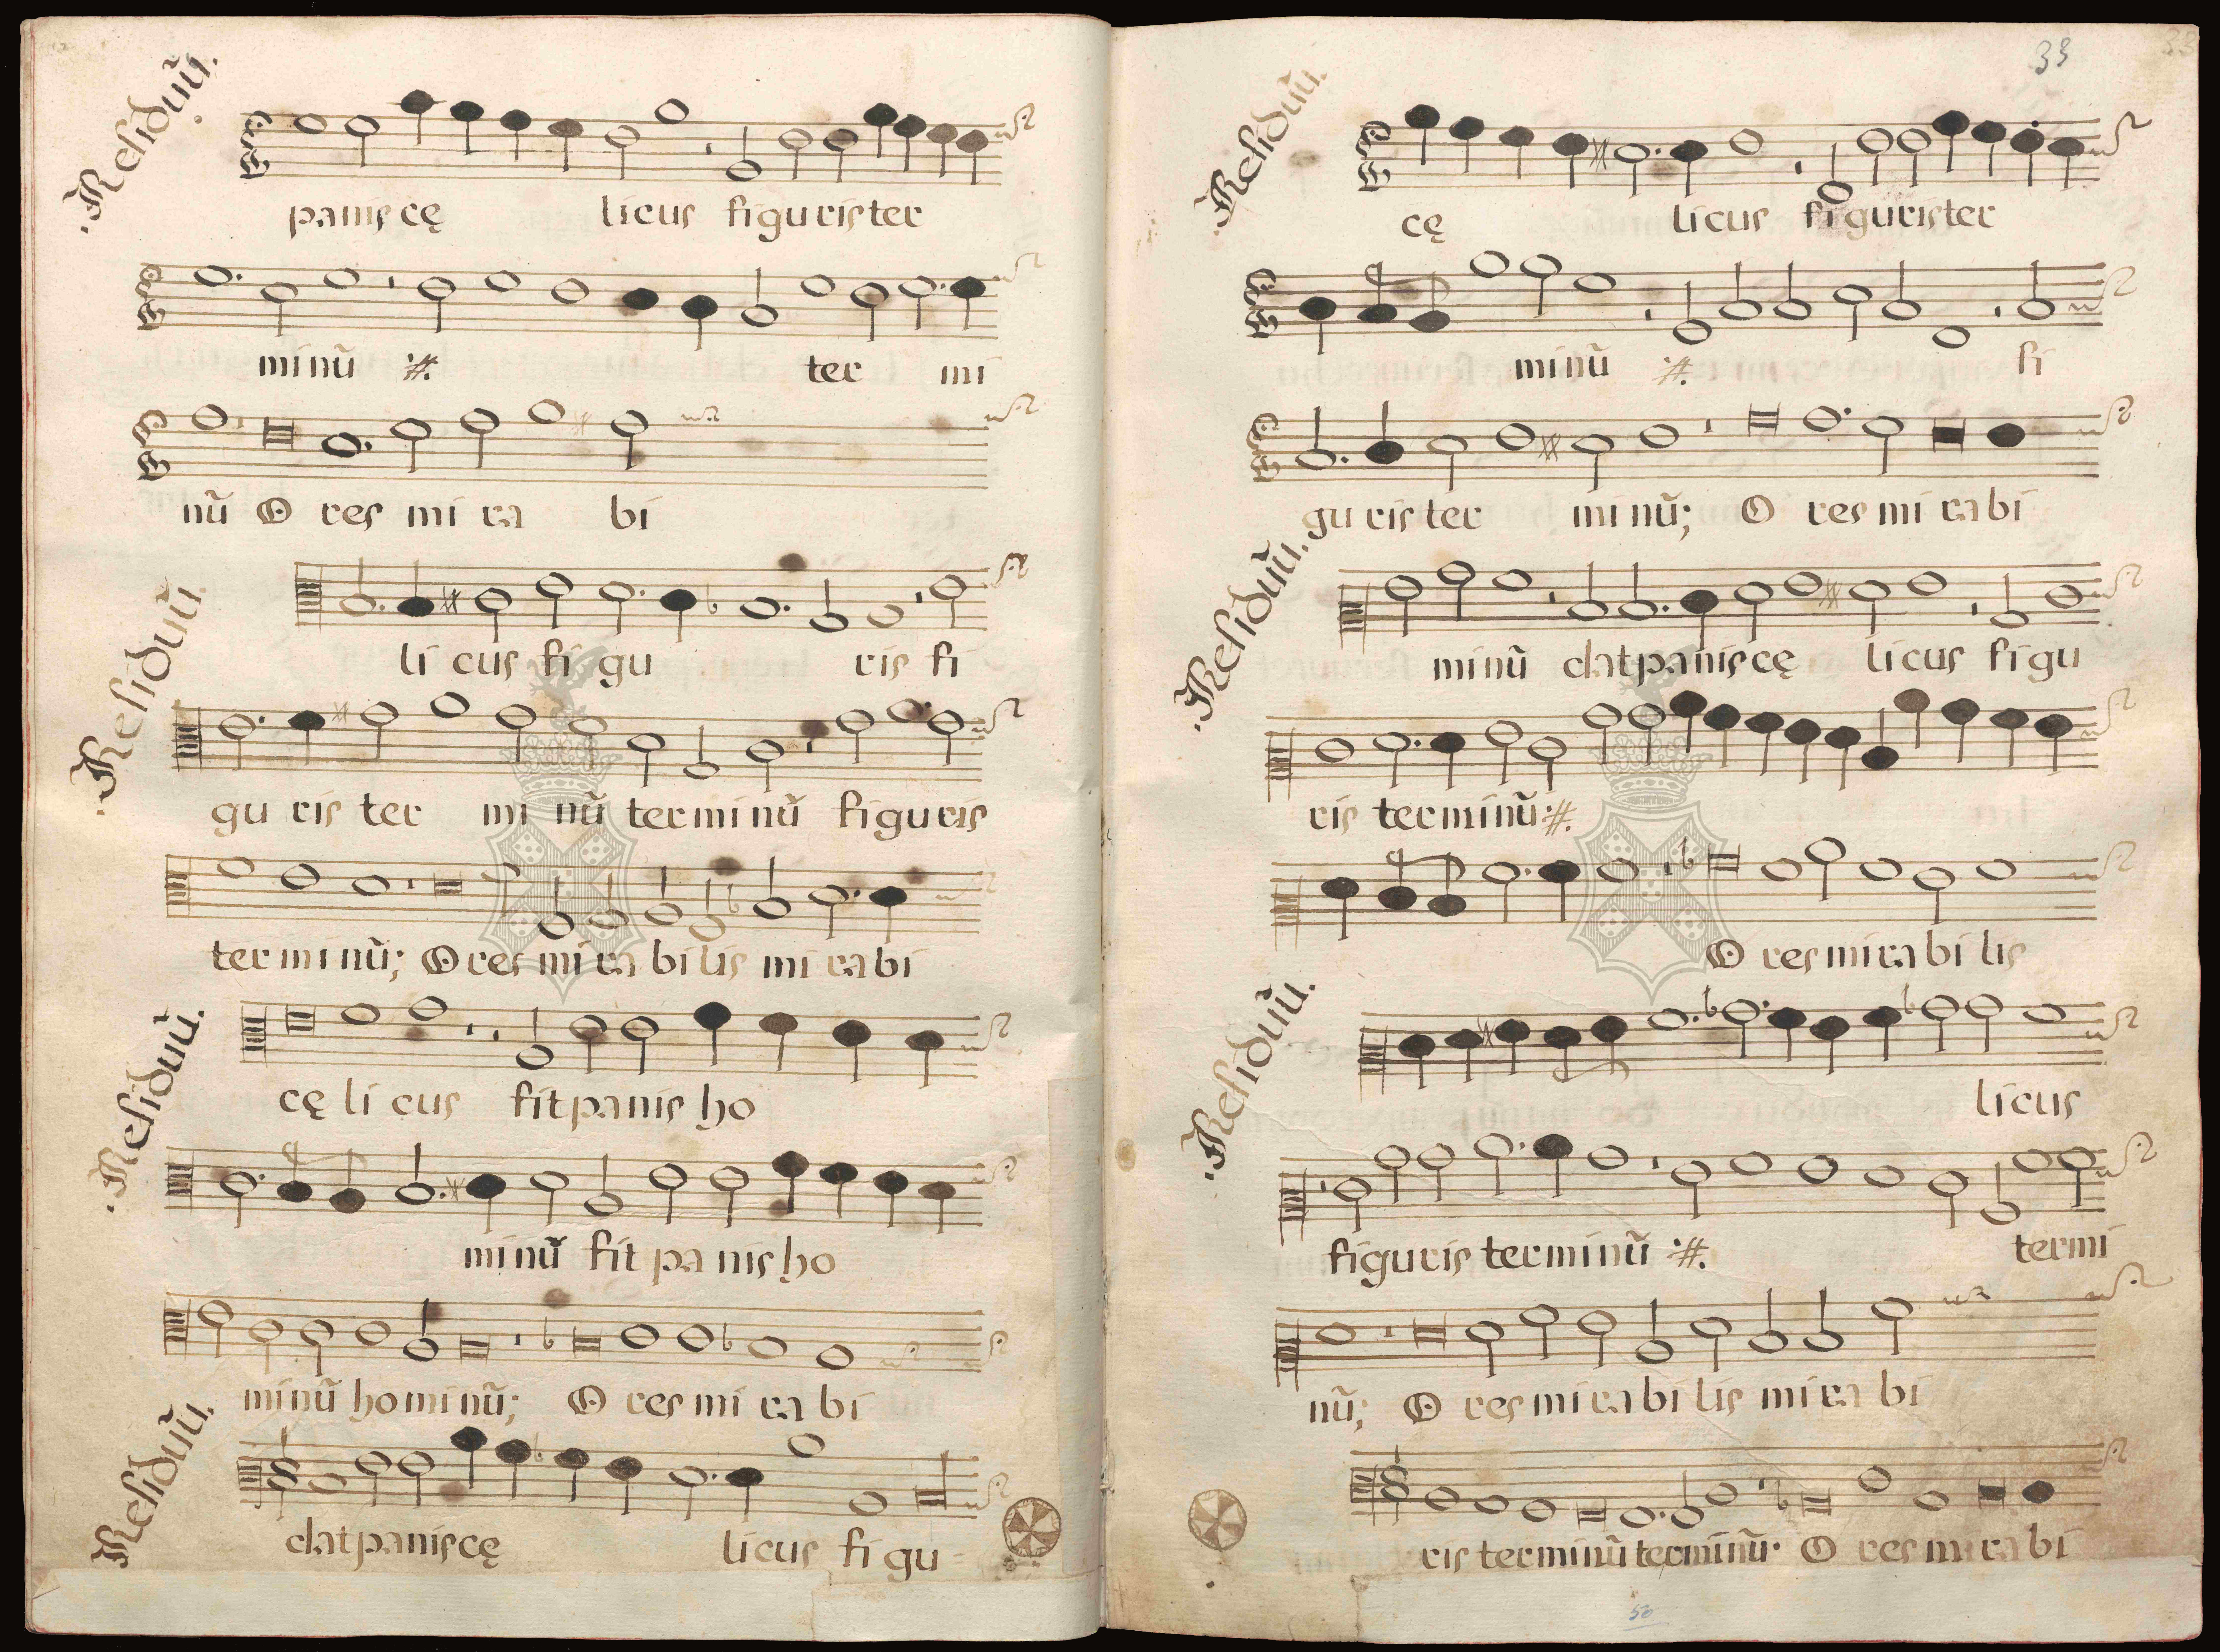 Residuũ.
panis cę licus figuris ter
minũ :#. ter mi
nũ O res mi ra bi
Residuũ
li cus fi gu ris fi
gu ris ter mi nũ terminũ figuris
terminũ; O res mirabilis mirabi
Residuũ.
cę li cus fit panis ho
minũ fit panis ho
minũ hominũ; O res mi ra bi
Residuũ.
dat panis cę licus fi gu
33
Residuũ.
cę licus figuris ter
minũ :#. fi
guris ter minũ; O res mirabi
Residuũ.
minũ dat panis cę licus figu
ris terminũ :#.
O res mirabilis
Residuũ.
licus
figuris terminũ :#. termi
nũ; O res mirabilis mira bi
ris terminũ terminũ. O res mirabi
50